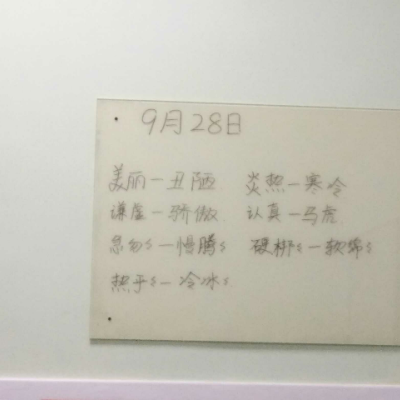 9月28日
美丽一丑陋 炎热一寒冷
谦虚一骄傲 认真一马虎
急匆匆一慢腾腾 硬梆梆一软绵绵
热乎乎一冷冰冰